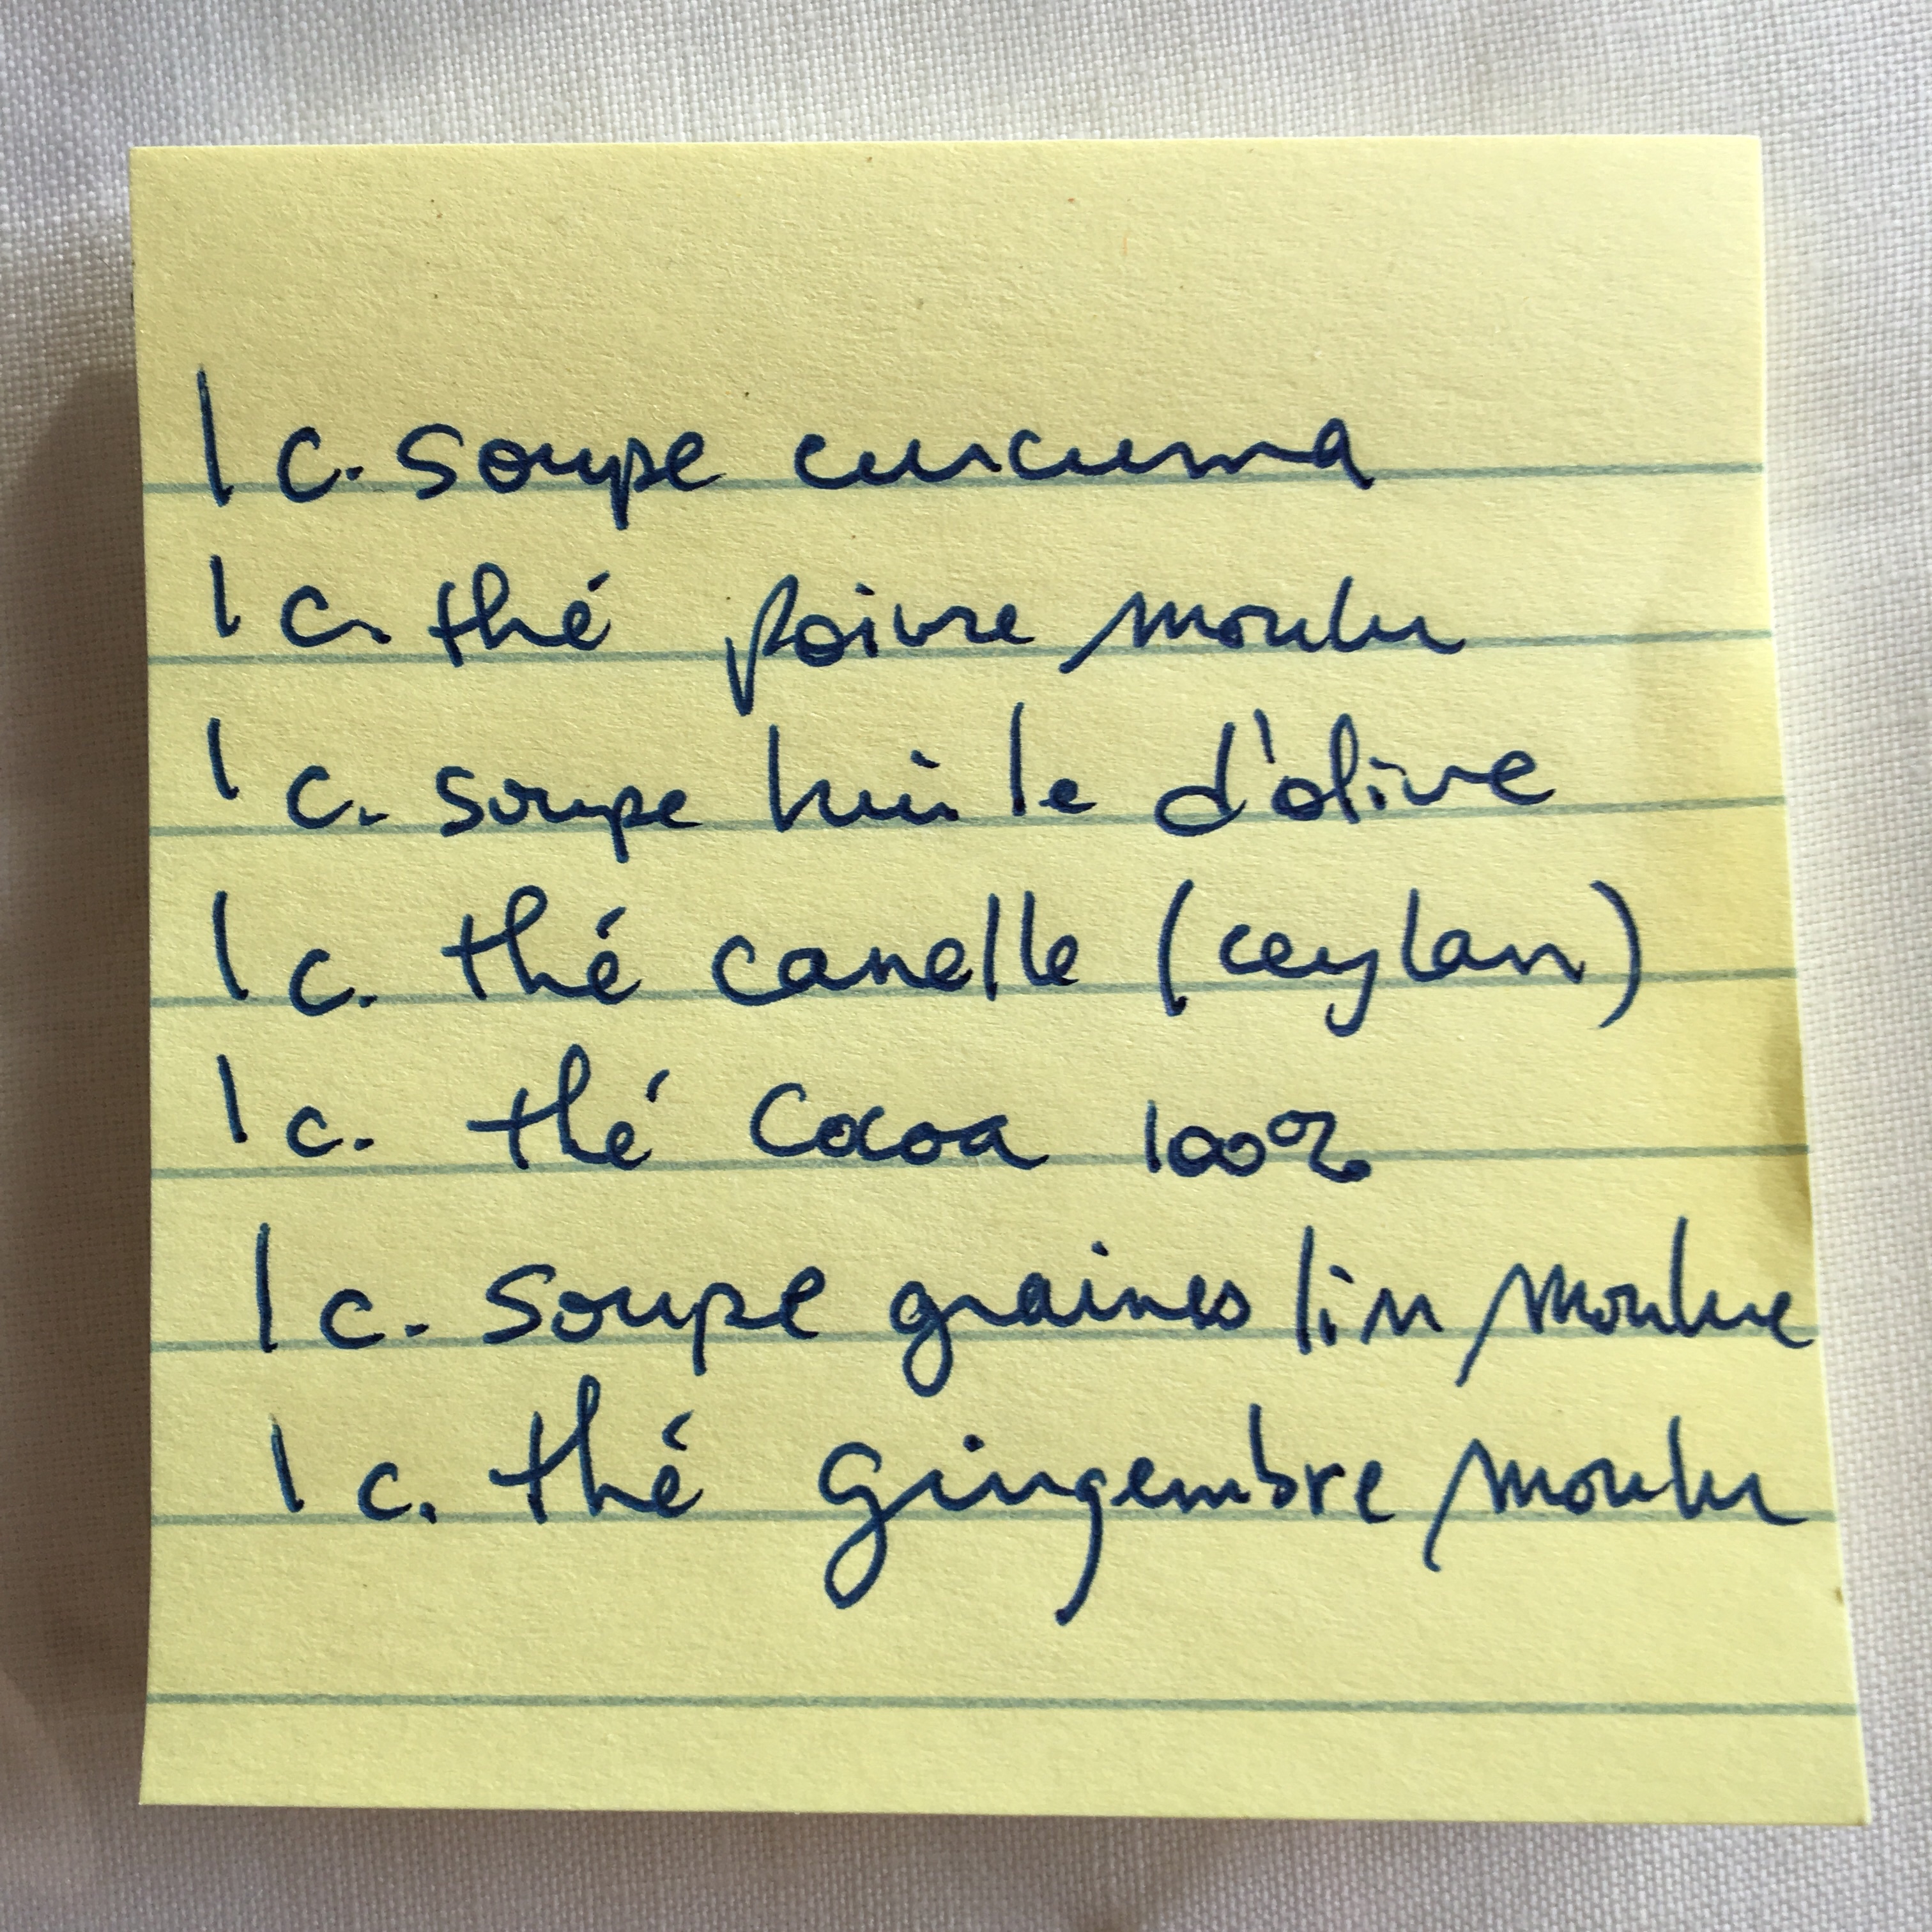 1 c. soupe curcuma
1 c. thé poivre moulu
1 c. soupe huile d'olive
1 c. thé canelle (ceylan)
1 c. thé Cocoa 100%
1 c. soupe graines lin moulue
1 c. thé gingembre moulu